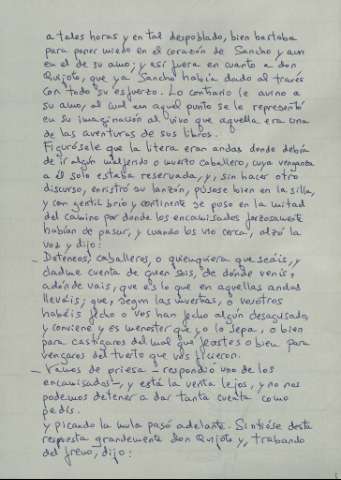 a tales horas y en tal despoblado, bien bastaba
para poner miedo en el corazón de Sancho y aun
en el de su amo; y así fuera en cuanto a don
Quijote, que ya Sancho había dado al través
con todo su esfuerzo. Lo contrario le avino a
su amo, al cual en aquel punto se le representó
en su imaginación al vivo que aquella era una
de las aventuras de sus libros.
Figurósele que la litera eran andas donde debía
de ir algún malferido o muerto caballero, cuya venganza
a él solo estaba reservada, y, sin hacer otro
discurso, enristró su lanzón, púsose bien en la silla,
y con gentil brío y continente se puso en la mitad
del camino por donde los encamisados forzosamente
habían de pasar, y cuando los vio cerca, alzó la
voz y dijo:
- Deteneos, caballeros, o quienquiera que seáis, y
dadme cuenta de quien sois, de dónde venís,
adónde vais, que es lo que en aquellas andas
lleváis; que, según las muestras, o vosotros
habéis fecho o vos han fecho algún desaguisado,
y conviene y es menester que yo lo sepa, o bien
para castigaros del mal que feastes o bien para
vengaros del tuerto que vos ficieron.
- Vamos de priesa - respondió uno de los
encamisados -, y está la venta lejos, y no nos
podemos detener a dar tanta cuenta como
pedís.
y picando la mula pasó adelante. Sintióse desta
respuesta grandemente don Quijote y, trabando
del freno, dijo: